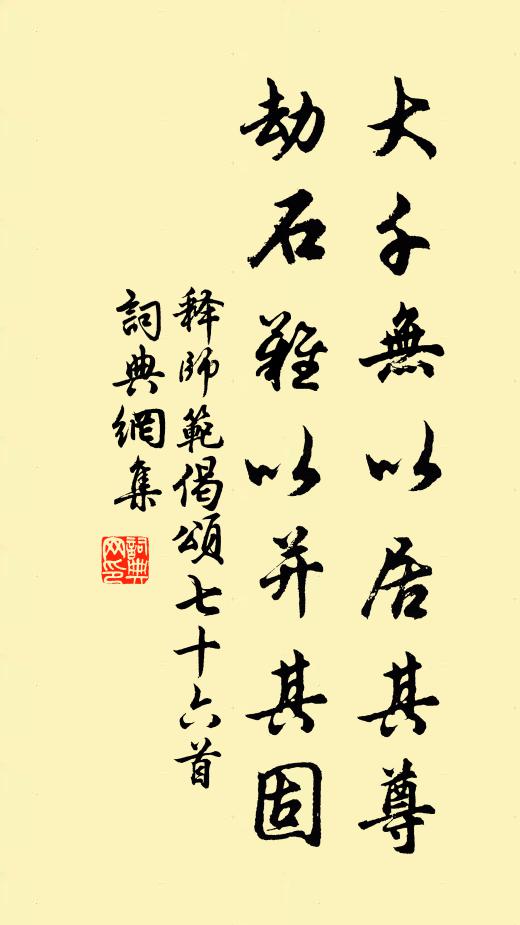 大千無以居其尊
劫石難以并其固
释師範偈頌七十六首
詞典網集
詞典网印